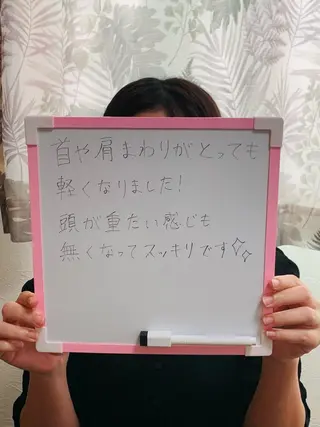 首や肩まわりがとっても
軽くなりました!
頭が重たい感じも
無くなってスッキリです✧✧